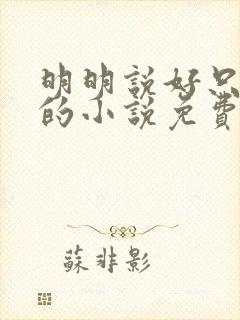 明明說好只
的小說免費
蘇非影